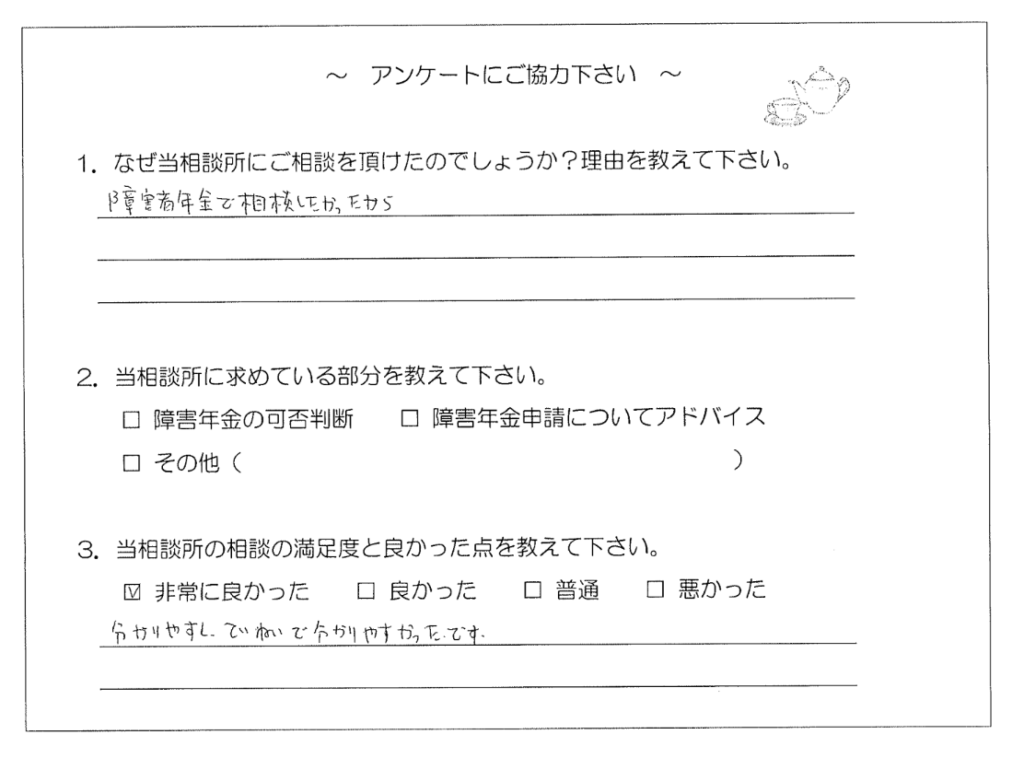 ～ アンケートにご協力下さい ～
1. なぜ当相談所にご相談を頂けたのでしょうか？理由を教えて下さい。
障害者年金で相検したかったから
2. 当相談所に求めている部分を教えて下さい。
□ 障害年金の可否判断 □ 障害年金申請についてアドバイス
□ その他（ ）
3. 当相談所の相談の満足度と良かった点を教えて下さい。
☑ 非常に良かった □ 良かった □ 普通 □ 悪かった
分かりやすし、ていねいで分かりやすかったです.